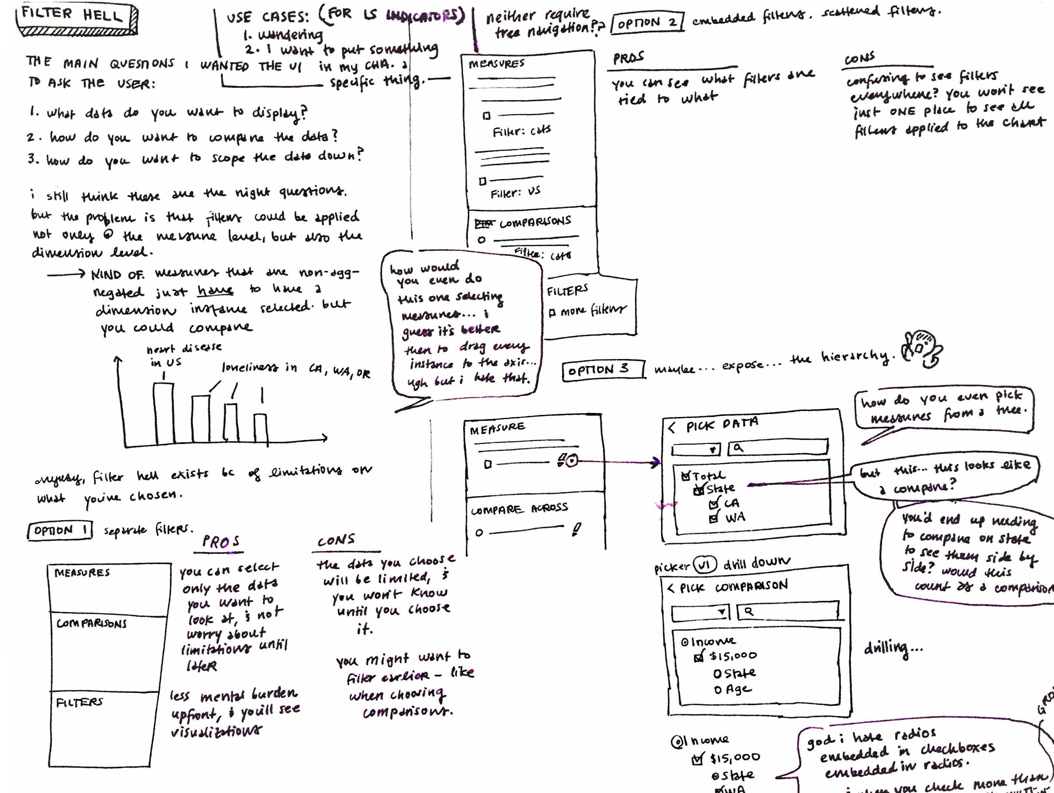 FILTER HELL
USE CASES: (FOR LS INDICATORS)
1. wandering
2. I want to put something
in my CHA. a
specific thing.
neither require
tree navigation??
THE MAIN QUESTIONS I WANTED THE UI
TO ASK THE USER:
1. what data do you want to display?
2. how do you want to compare the data?
3. how do you want to scope the data down?
i still think these are the right questions.
but the problem is that filters could be applied
not only @ the measure level, but also the
dimension level.
KIND OF. measures that are non-agg-
regated just have to have a
dimension instance selected. but
you could compare
heart disease
in US
loneliness in CA, WA, OR
anyway, filter hell exists bc of limitations on
what you've chosen.
OPTION 1 separate filters.
MEASURES
COMPARISONS
FILTERS
PROS
you can select
only the data
you want to
look at, & not
worry about
limitations until
later
less mental burden
upfront, & you'll see
visualizations
CONS
the data you choose
will be limited, &
you won't know
until you choose
it.
you might want to
filter earlier - like
when choosing
comparisons.
OPTION 2 embedded filters. scattered filters.
MEASURES
Filter: cats
Filter: US
COMPARISONS
Filter: cats
FILTERS
more filters
PROS
you can see what filters are
tied to what
CONS
confusing to see filters
everywhere? you won't see
just ONE place to see all
filters applied to the chart
how would
you even do
this one selecting
measures... i
guess it's better
then to drag every
instance to the axis...
ugh but i hate that.
OPTION 3 maybe... expose... the hierarchy.
MEASURE
COMPARE ACROSS
< PICK DATA
Total
State
CA
WA
how do you even pick
measures from a tree.
but this... this looks like
a compare?
you'd end up needing
to compare on state
to see them side by
side? would this
count as a comparison
picker V1 drill down
< PICK COMPARISON
Income
$15,000
State
Age
drilling...
Income
$15,000
State
WA
god i hate radios
embedded in checkboxes
embedded in radios.
when you check more than